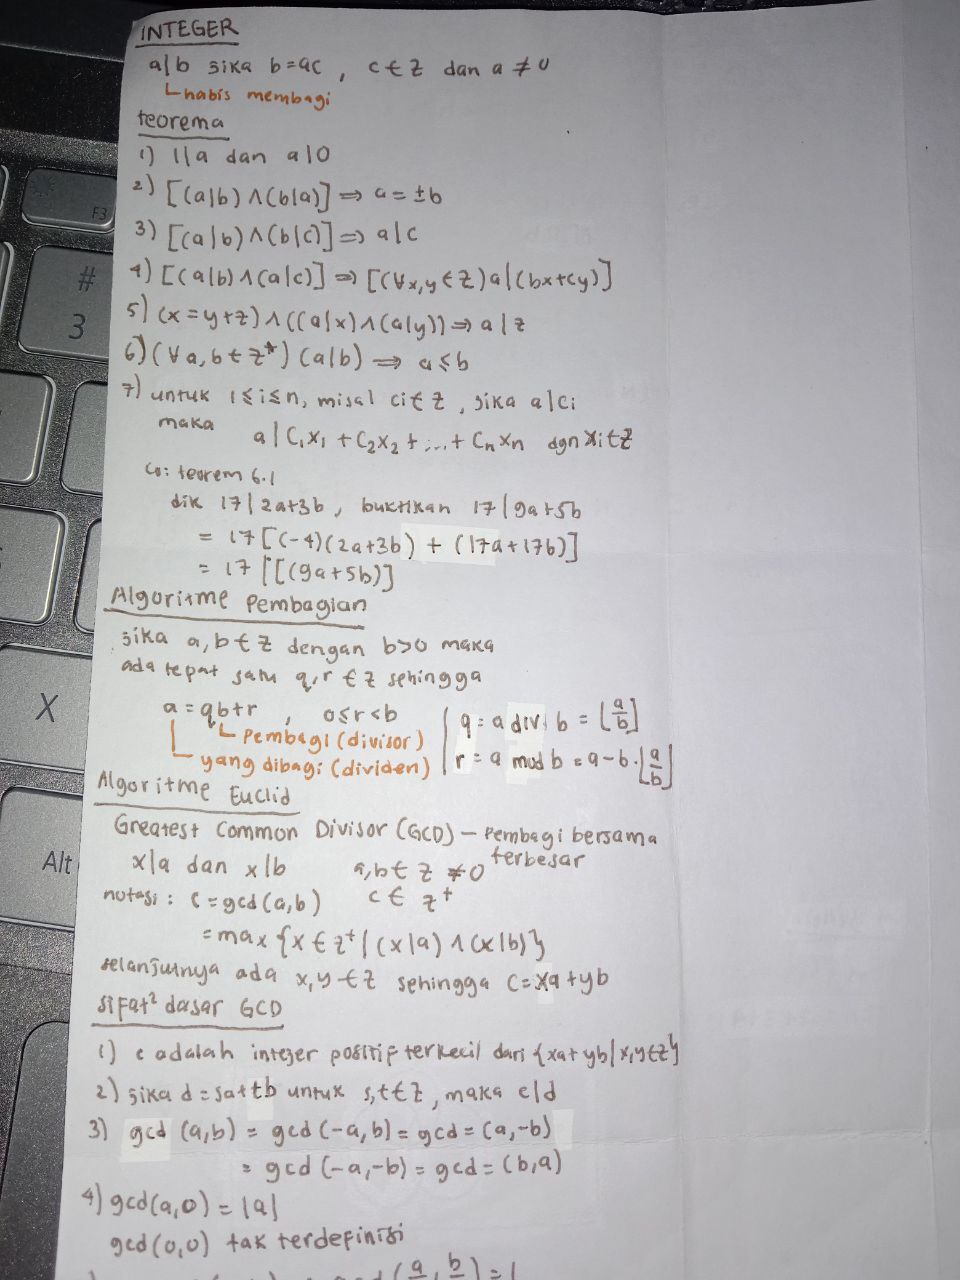 INTEGER
a|b jika b=ac , c∈Z dan a≠0
habis membagi
teorema
1) 1|a dan a|0
2) [(a|b)∧(b|a)]⇒ a=±b
3) [(a|b)∧(b|c)]⇒ a|c
4) [(a|b)∧(a|c)] ⇒ [(∀x,y∈Z)a|(bx+cy)]
5) (x=y+z)∧((a|x)∧(a|y))⇒ a|z
6) (∀a,b∈Z⁺)(a|b) ⇒ a≤b
7) untuk 1≤i≤n, misal ci∈Z, jika a|ci
maka a|C₁X₁ + C₂X₂ +...+ CₙXₙ dgn xi∈Z
Co: teorem 6.1
dik 17|2a+3b, buktikan 17|9a+5b
= 17[(-4)(2a+3b) + (17a+17b)]
= 17|[(9a+5b)]
Algoritme Pembagian
jika a,b∈Z dengan b>0 maka
ada tepat satu q,r∈Z sehingga
a=qb+r , 0≤r<b
q = a div b = ⌊a/b⌋
Pembagi (divisor)
r = a mod b = a-b.⌊a/b⌋
yang dibagi (dividen)
Algoritme Euclid
Greatest Common Divisor (GCD) — Pembagi bersama
terbesar
x|a dan x|b a,b∈Z ≠0
notasi : c=gcd(a,b) c∈ Z⁺
=max {x∈Z⁺|(x|a)∧(x|b)}
selanjutnya ada x,y∈Z sehingga c=xa+yb
sifat² dasar GCD
1) c adalah integer positif terkecil dari {xa+yb|x,y∈Z}
2) jika d=sa+tb untuk s,t∈Z, maka c|d
3) gcd (a,b) = gcd (-a,b) = gcd = (a,-b)
= gcd (-a,-b) = gcd = (b,a)
4) gcd(a,0) = |a|
gcd(0,0) tak terdefinisi
(a, b)=1